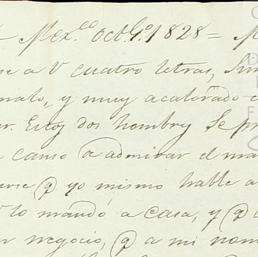 Mexco Octe 1º 1828 =
se a V cuatro letras, sin
malo, y muy acalorado
er. Estoy dos hombres se pr
causo a admirar el ma
erse q yo mismo halle a
lo mandó a casa, y q
negocio, q a mi nom